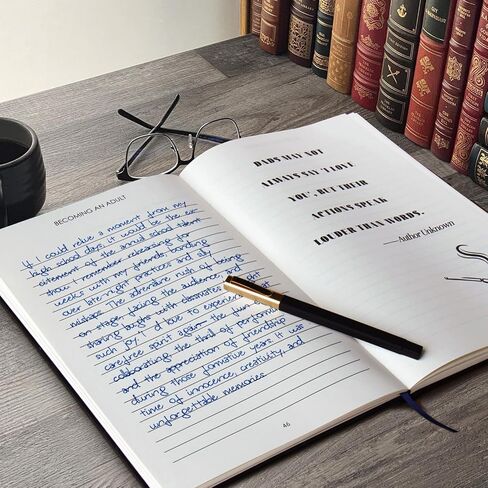 BECOMING AN ADULT
If I could relive a moment from my
high school days, it would be the ex-
citement of the annual school talent
show. I remember rehearsing for
weeks with my friends, bonding
over late-night practices and silly
mishaps. The adrenaline rush of being
on stage, facing the audience, and
sharing laughs with classmates
such joy. I'd love to experience
carefree spirit again, the fun of
collaborating, the thrill of performing
and the appreciation of friendship
during those formative years. It was
time of innocence, creativity, and
unforgettable memories.
46
DADS MAY NOT
ALWAYS SAY 'I LOVE
YOU', BUT THEIR
ACTIONS SPEAK
LOUDER THAN WORDS.
—Author Unknown